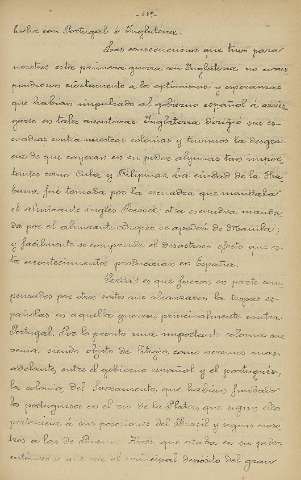 hubo con Portugal é Inglaterra.
Las consecuencias que tuvo para
nosotros esta primera guerra con Inglaterra no
pudieron ciertamente a los optimismos y esperanzas
que habían impulsado al gobierno español á
en tales aventuras. Inglaterra dirigió sus es-
cuadras contra nuestras colonias y tuvimos la desgra-
cia de que cayeran en su poder algunas tan impor-
tantes como Cuba y Filipinas. La ciudad de la Ha-
bana, fué tomada por la escuadra que mandaba
el almirante inglés Pocock, otra escuadra manda-
da por el almirante se apoderó de Manila;
y facilmente se comprende el desastroso efecto que
acontecimientos producirían en España.
es que fueron en parte com-
pensados por otros que alcanzaron las tropas es-
pañolas en aquella guerra, principalmente contra
Portugal. Por lo pronto una importante colonia ame-
ricana, siendo objeto de litigio, como veremos mas
adelante, entre el gobierno español y el portugués,
la colonia del Sacramento, que habían fundado
los portugueses en el rio de la Plata, que según ellos
pertenecía á sus posesiones del Brasil y según noso-
tros á las de que estaba en su poder
entonces era el principal depósito del gran